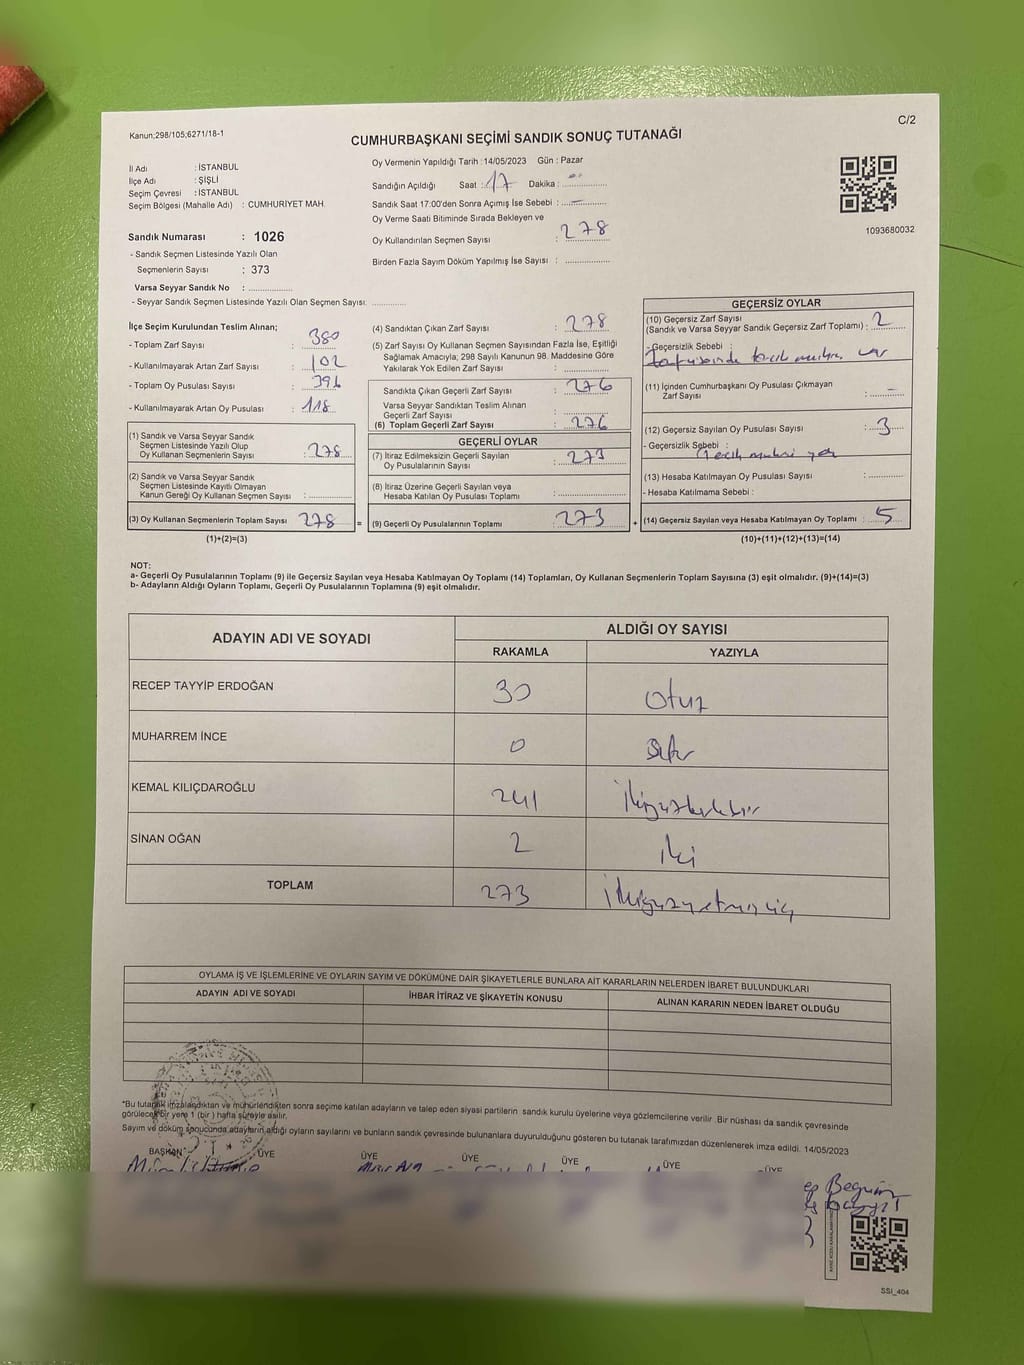 Kanun;298/105;6271/18-1
C/2
CUMHURBAŞKANI SEÇİMİ SANDIK SONUÇ TUTANAĞI
İl Adı : İSTANBUL
İlçe Adı : ŞİŞLİ
Seçim Çevresi : İSTANBUL
Seçim Bölgesi (Mahalle Adı) : CUMHURİYET MAH.
Sandık Numarası : 1026
- Sandık Seçmen Listesinde Yazılı Olan
Seçmenlerin Sayısı : 373
Varsa Seyyar Sandık No :
- Seyyar Sandık Seçmen Listesinde Yazılı Olan Seçmen Sayısı:
Oy Vermenin Yapıldığı Tarih : 14/05/2023 Gün : Pazar
Sandığın Açıldığı Saat : 17 Dakika :
Sandık Saat 17:00'den Sonra Açımış İse Sebebi :
Oy Verme Saati Bitiminde Sırada Bekleyen ve
Oy Kullandırılan Seçmen Sayısı : 278
Birden Fazla Sayım Döküm Yapılmış İse Sayısı :
1093680032
İlçe Seçim Kurulundan Teslim Alınan;
- Toplam Zarf Sayısı : 380
- Kullanılmayarak Artan Zarf Sayısı : 102
- Toplam Oy Pusulası Sayısı : 396
- Kullanılmayarak Artan Oy Pusulası : 118
(1) Sandık ve Varsa Seyyar Sandık
Seçmen Listesinde Yazılı Olup
Oy Kullanan Seçmenlerin Sayısı : 278
(2) Sandık ve Varsa Seyyar Sandık
Seçmen Listesinde Kayıtlı Olmayan
Kanun Gereği Oy Kullanan Seçmen Sayısı :
(3) Oy Kullanan Seçmenlerin Toplam Sayısı 278
(1)+(2)=(3)
(4) Sandıktan Çıkan Zarf Sayısı : 278
(5) Zarf Sayısı Oy Kullanan Seçmen Sayısından Fazla İse, Eşitliği
Sağlamak Amacıyla; 298 Sayılı Kanunun 98. Maddesine Göre
Yakılarak Yok Edilen Zarf Sayısı :
Sandıkta Çıkan Geçerli Zarf Sayısı : 276
Varsa Seyyar Sandıktan Teslim Alınan
Geçerli Zarf Sayısı :
(6) Toplam Geçerli Zarf Sayısı : 276
GEÇERLİ OYLAR
(7) İtiraz Edilmeksizin Geçerli Sayılan
Oy Pusulalarının Sayısı : 273
(8) İtiraz Üzerine Geçerli Sayılan veya
Hesaba Katılan Oy Pusulası Toplamı :
= (9) Geçerli Oy Pusulalarının Toplamı : 273
GEÇERSİZ OYLAR
(10) Geçersiz Zarf Sayısı
(Sandık ve Varsa Seyyar Sandık Geçersiz Zarf Toplamı) : 2
- Geçersizlik Sebebi :
var
(11) İçinden Cumhurbaşkanı Oy Pusulası Çıkmayan
Zarf Sayısı : –
(12) Geçersiz Sayılan Oy Pusulası Sayısı : 3
- Geçersizlik Sebebi :
yok
(13) Hesaba Katılmayan Oy Pusulası Sayısı :
- Hesaba Katılmama Sebebi :
+ (14) Geçersiz Sayılan veya Hesaba Katılmayan Oy Toplamı : 5
(10)+(11)+(12)+(13)=(14)
NOT:
a- Geçerli Oy Pusulalarının Toplamı (9) ile Geçersiz Sayılan veya Hesaba Katılmayan Oy Toplamı (14) Toplamları, Oy Kullanan Seçmenlerin Toplam Sayısına (3) eşit olmalıdır. (9)+(14)=(3)
b- Adayların Aldığı Oyların Toplamı, Geçerli Oy Pusulalarının Toplamına (9) eşit olmalıdır.
ADAYIN ADI VE SOYADI ALDIĞI OY SAYISI
RAKAMLA YAZIYLA
RECEP TAYYİP ERDOĞAN 30 otuz
MUHARREM İNCE 0 sıfır
KEMAL KILIÇDAROĞLU 241 ikiyüzkırkbir
SİNAN OĞAN 2 iki
TOPLAM 273 ikiyüzyetmişüç
OYLAMA İŞ VE İŞLEMLERİNE VE OYLARIN SAYIM VE DÖKÜMÜNE DAİR ŞİKAYETLERLE BUNLARA AİT KARARLARIN NELERDEN İBARET BULUNDUKLARI
ADAYIN ADI VE SOYADI İHBAR İTİRAZ VE ŞİKAYETİN KONUSU ALINAN KARARIN NEDEN İBARET OLDUĞU
*Bu tutanak imzalandıktan ve mühürlendikten sonra seçime katılan adayların ve talep eden siyasi partilerin sandık kurulu üyelerine veya gözlemcilerine verilir. Bir nüshası da sandık çevresinde
görülecek bir yere 1 (bir) hafta süreyle asılır.
Sayım ve döküm sonucunda adayların aldığı oyların sayılarını ve bunların sandık çevresinde bulunanlara duyurulduğunu gösteren bu tutanak tarafımızdan düzenlenerek imza edildi. 14/05/2023
BAŞKAN ÜYE ÜYE ÜYE ÜYE ÜYE ÜYE
Begüm
SSI_404